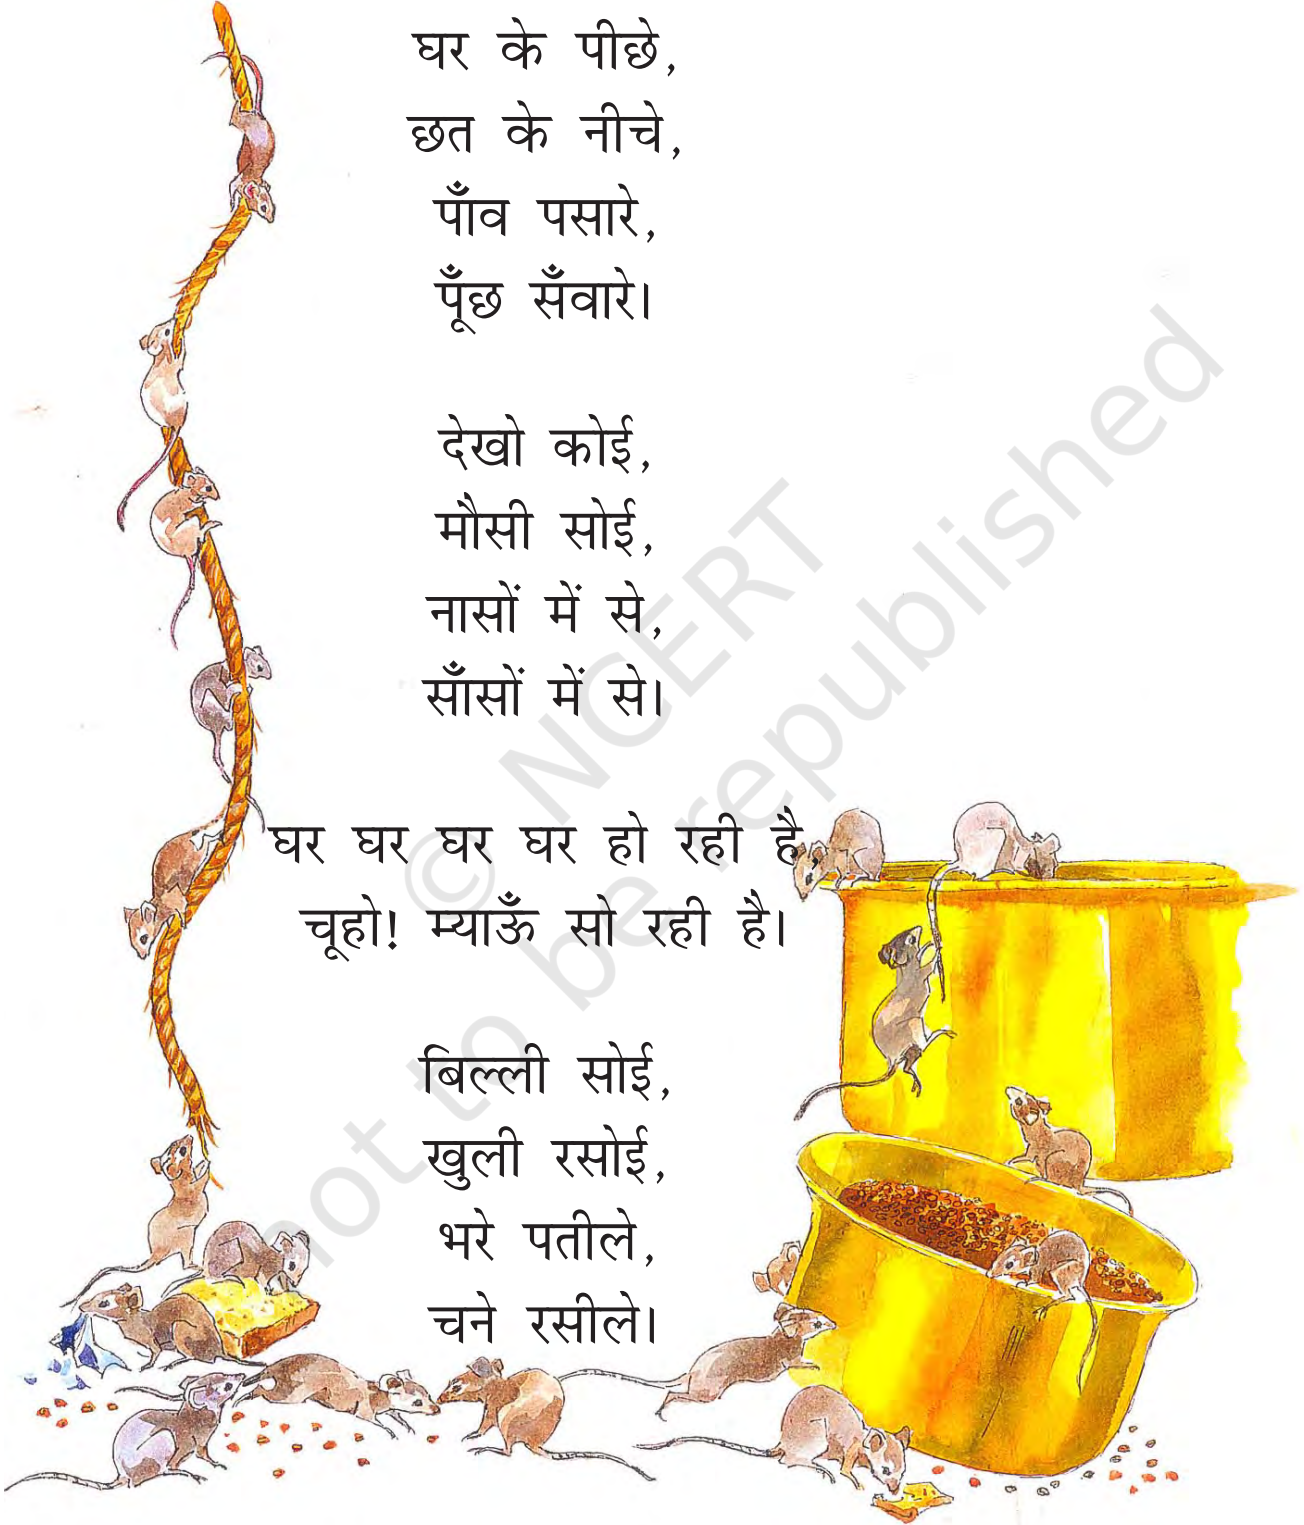 घर के पीछे,
छत के नीचे,
पाँव पसारे,
पूँछ सँवारे।
देखो कोई,
मौसी सोई,
नासों में से,
साँसों में से।
घर घर घर घर हो रही है,
चूहो! म्याऊँ सो रही है।
बिल्ली सोई,
खुली रसोई,
भरे पतीले,
चने रसीले।
© NCERT
not to be republished